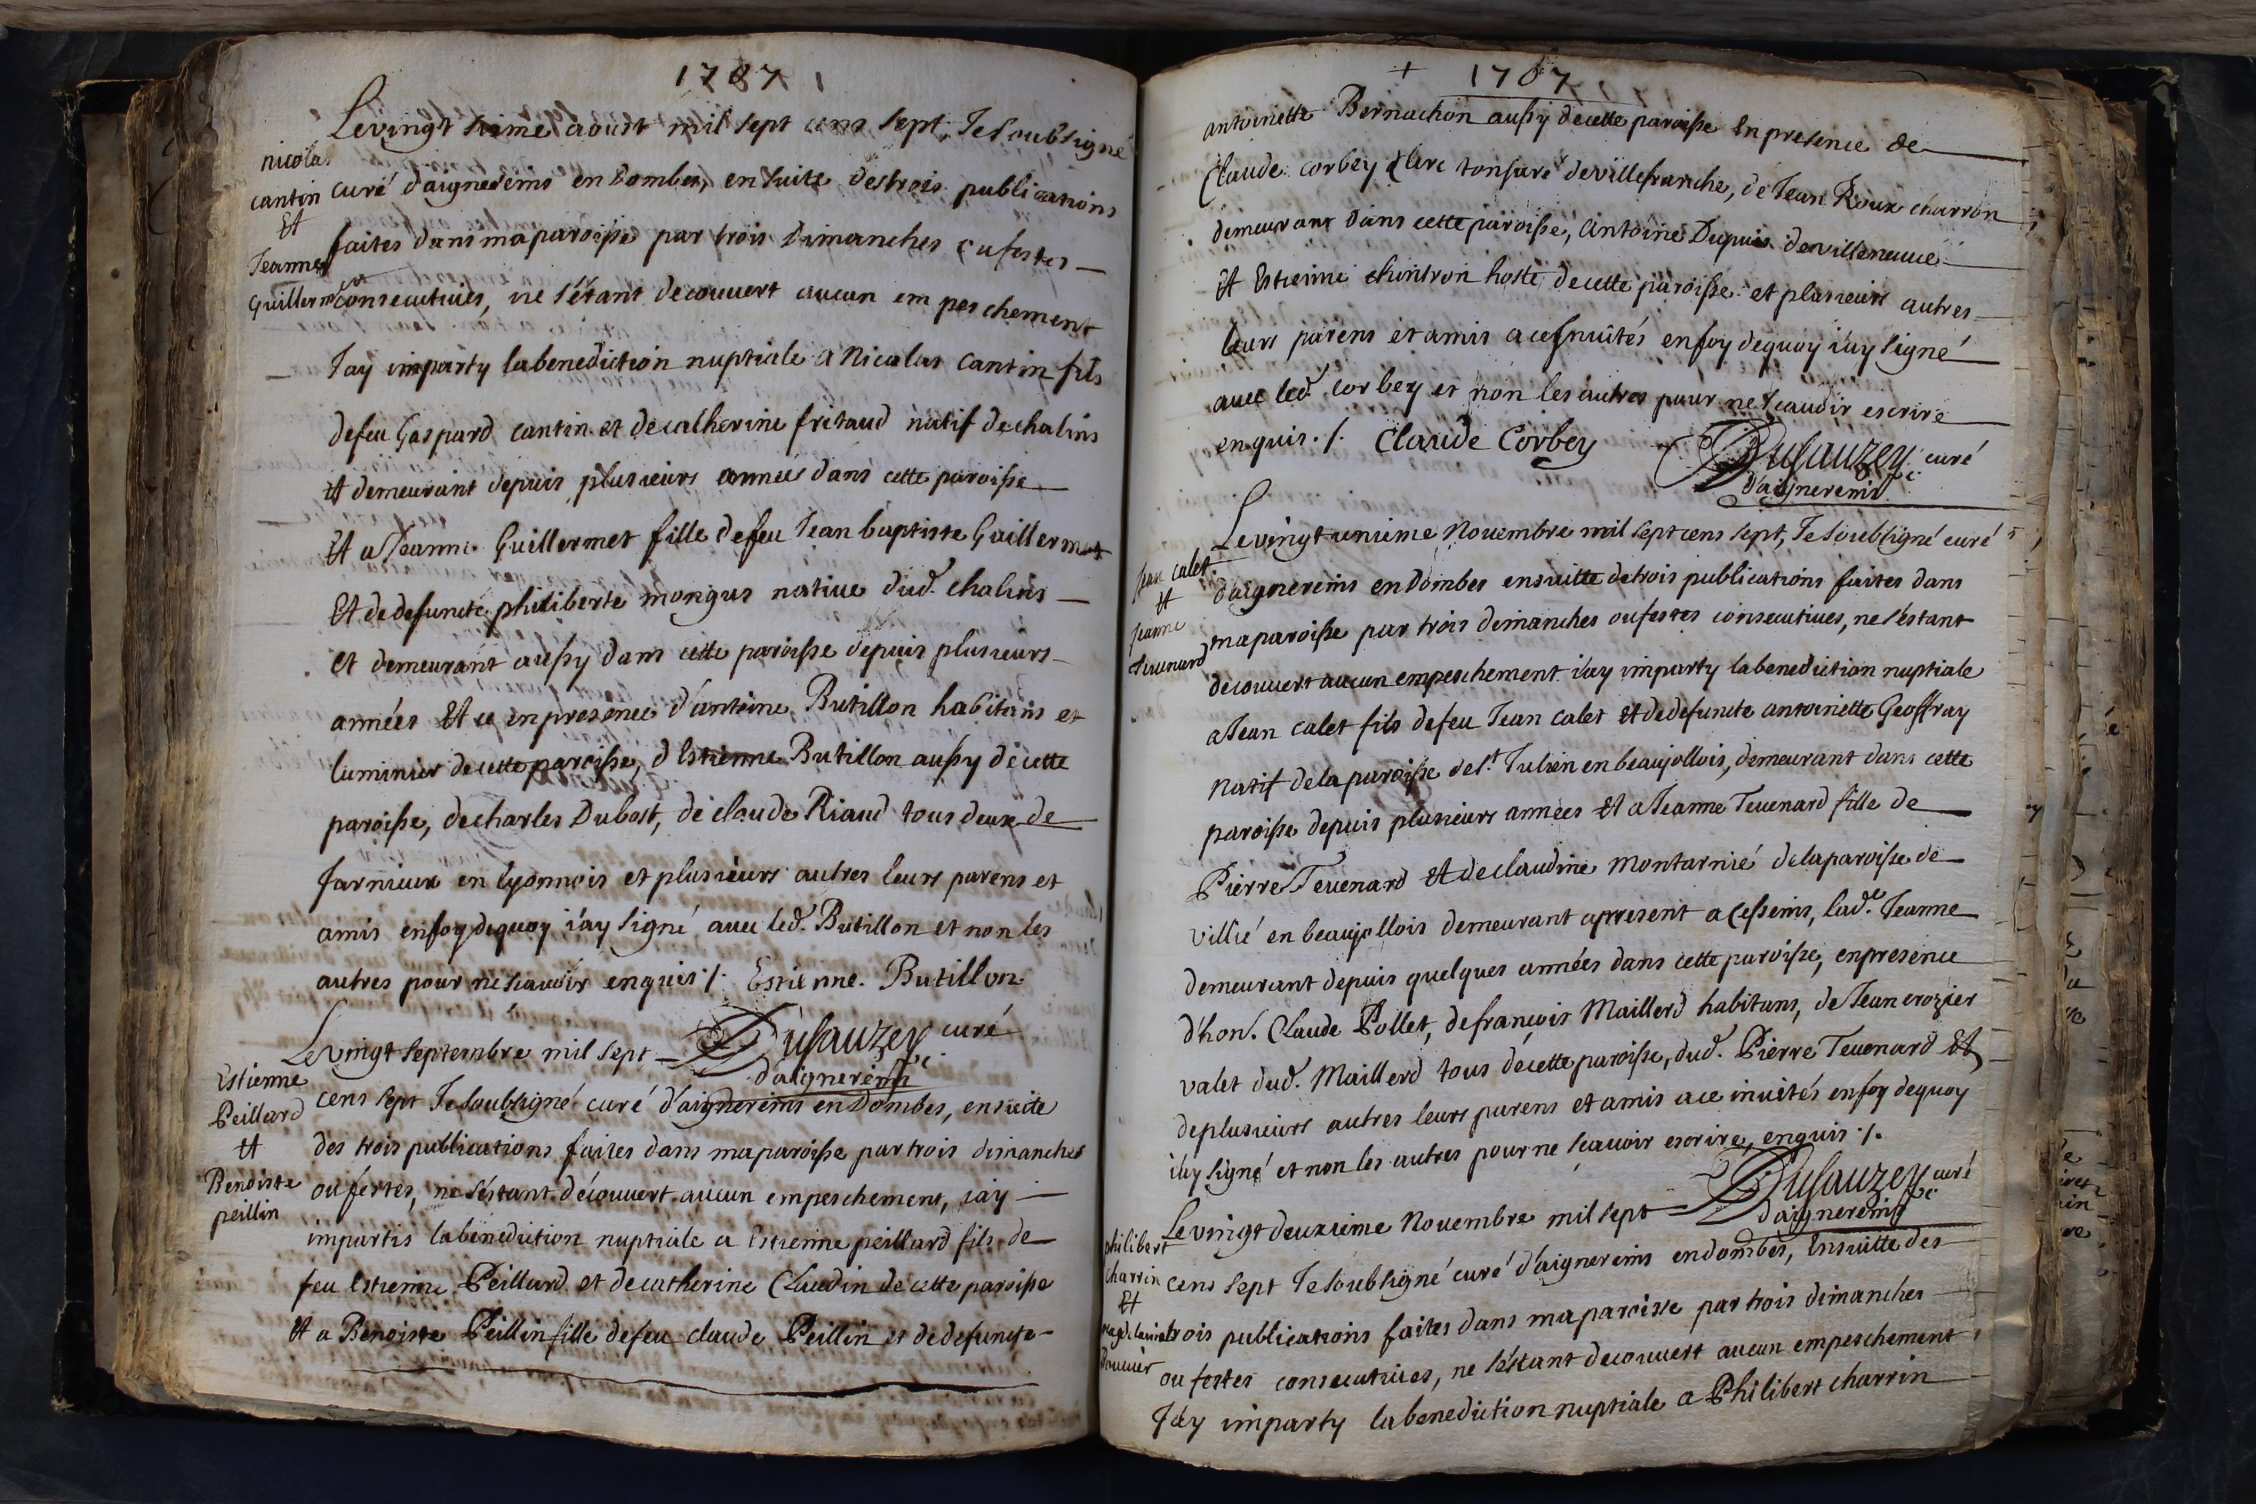 1707
Le vingt sixime aoust mil sept cens sept, Je soubsigné
nicolas
cantin
Et
Jeanne
Guillermet
curé d'aignereins en Dombes, en suite des trois publications
faites dans ma paroisse par trois Dimanches ou festes
consecutives, ne s'étant decouvert aucun empeschement
J'ay imparty la benediction nuptiale a Nicolas Cantin fils
de feu Gaspard cantin et de catherine fritaud natif de chalins
Et demeurant depuis plusieurs années dans cette paroisse
Et a Jeanne Guillermet fille de feu Jean baptiste Guillermet
Et de defuncte philiberte mongus native dud. chalins
et demeurant aussy dans cette paroisse depuis plusieurs
années Et ce en presence d'antoine Butillon habitans et
luminier de cette paroisse, d'Estienne Butillon aussy de cette
paroisse, de charles Dubost, de claude Riaud tous deux de
Jarnieux en Lyonnois et plusieurs autres leurs parens et
amis en foy de quoy j'ay signé avec led. Butillon et non les
autres pour ne scavoir enquis ./. Estienne. Butillon
Dusauzey curé
d'aignereins
Le vingt septembre mil sept
Estienne
Peillard
Et
Benoiste
peillin
cens sept Je soubsigné curé d'aignereins en Dombes, ensuite
des trois publications faites dans ma paroisse par trois dimanches
ou festes, ne s'éstant découvert aucun empeschement, j'ay
impartis la benediction nuptiale a Estienne peillard fils de
feu Estienne Peillard et de catherine Claudin de cette paroisse
Et a Benoiste Peillin fille de feu claude Peillin et de defuncte
+ 1707
antoinette Bernachon aussy de cette paroisse En presence de
Claude corbey Clerc tonsuré de villefranche, de Jean Roux charron
demeurant dans cette paroisse, Antoine Dupuis de villeneuve
Et Estienne chintron hoste de cette paroisse et plusieurs autres
leurs parens et amis a ces invités en foy de quoy j'ay signé
avec led. Corbey et non les autres pour ne scavoir escrire
enquis ./. Claude Corbey
Dusauzey curé
d'aignereins
Le vingt unieme Novembre mil sept cens sept, Je soubsigné curé
Jean calet
Et
Jeanne
Tevenard
d'aignereins en Dombes ensuitte de trois publications faites dans
ma paroisse par trois dimanches ou festes consecutives, ne s'estant
decouvert aucun empeschement j'ay imparty la benediction nuptiale
a Jean calet fils de feu Jean calet Et de defuncte antoinette Geoffray
Natif de la paroisse de St Julien en beaujollois, demeurant dans cette
paroisse depuis plusieurs années Et a Jeanne Tevenard fille de
Pierre Tevenard Et de claudine Montarnié de la paroisse de
villié en beaujollois demeurant apresent a Cesseins, lad.e Jeanne
demeurant depuis quelques années dans cette paroisse, en presence
d'hon. Claude Pollet, de françois Maillerd habitans, de Jean crozier
valet dud. Maillerd tous de cette paroisse, dud. Pierre Tevenard Et
de plusieurs autres leurs parens et amis a ce invités en foy de quoy
j'ay signé et non les autres pour ne scavoir escrire, enquis ./.
Dusauzey curé
d'aignereins
Le vingt deuxieme Novembre mil sept
philibert
charrin
Et
cens sept Je soubsigné curé d'aignereins en dombes, Ensuitte des
trois publications faites dans ma paroisse par trois dimanches
ou festes consecutives, ne s'éstant decouvert aucun empeschement
J'ay imparty la benediction nuptiale a Philibert charrin